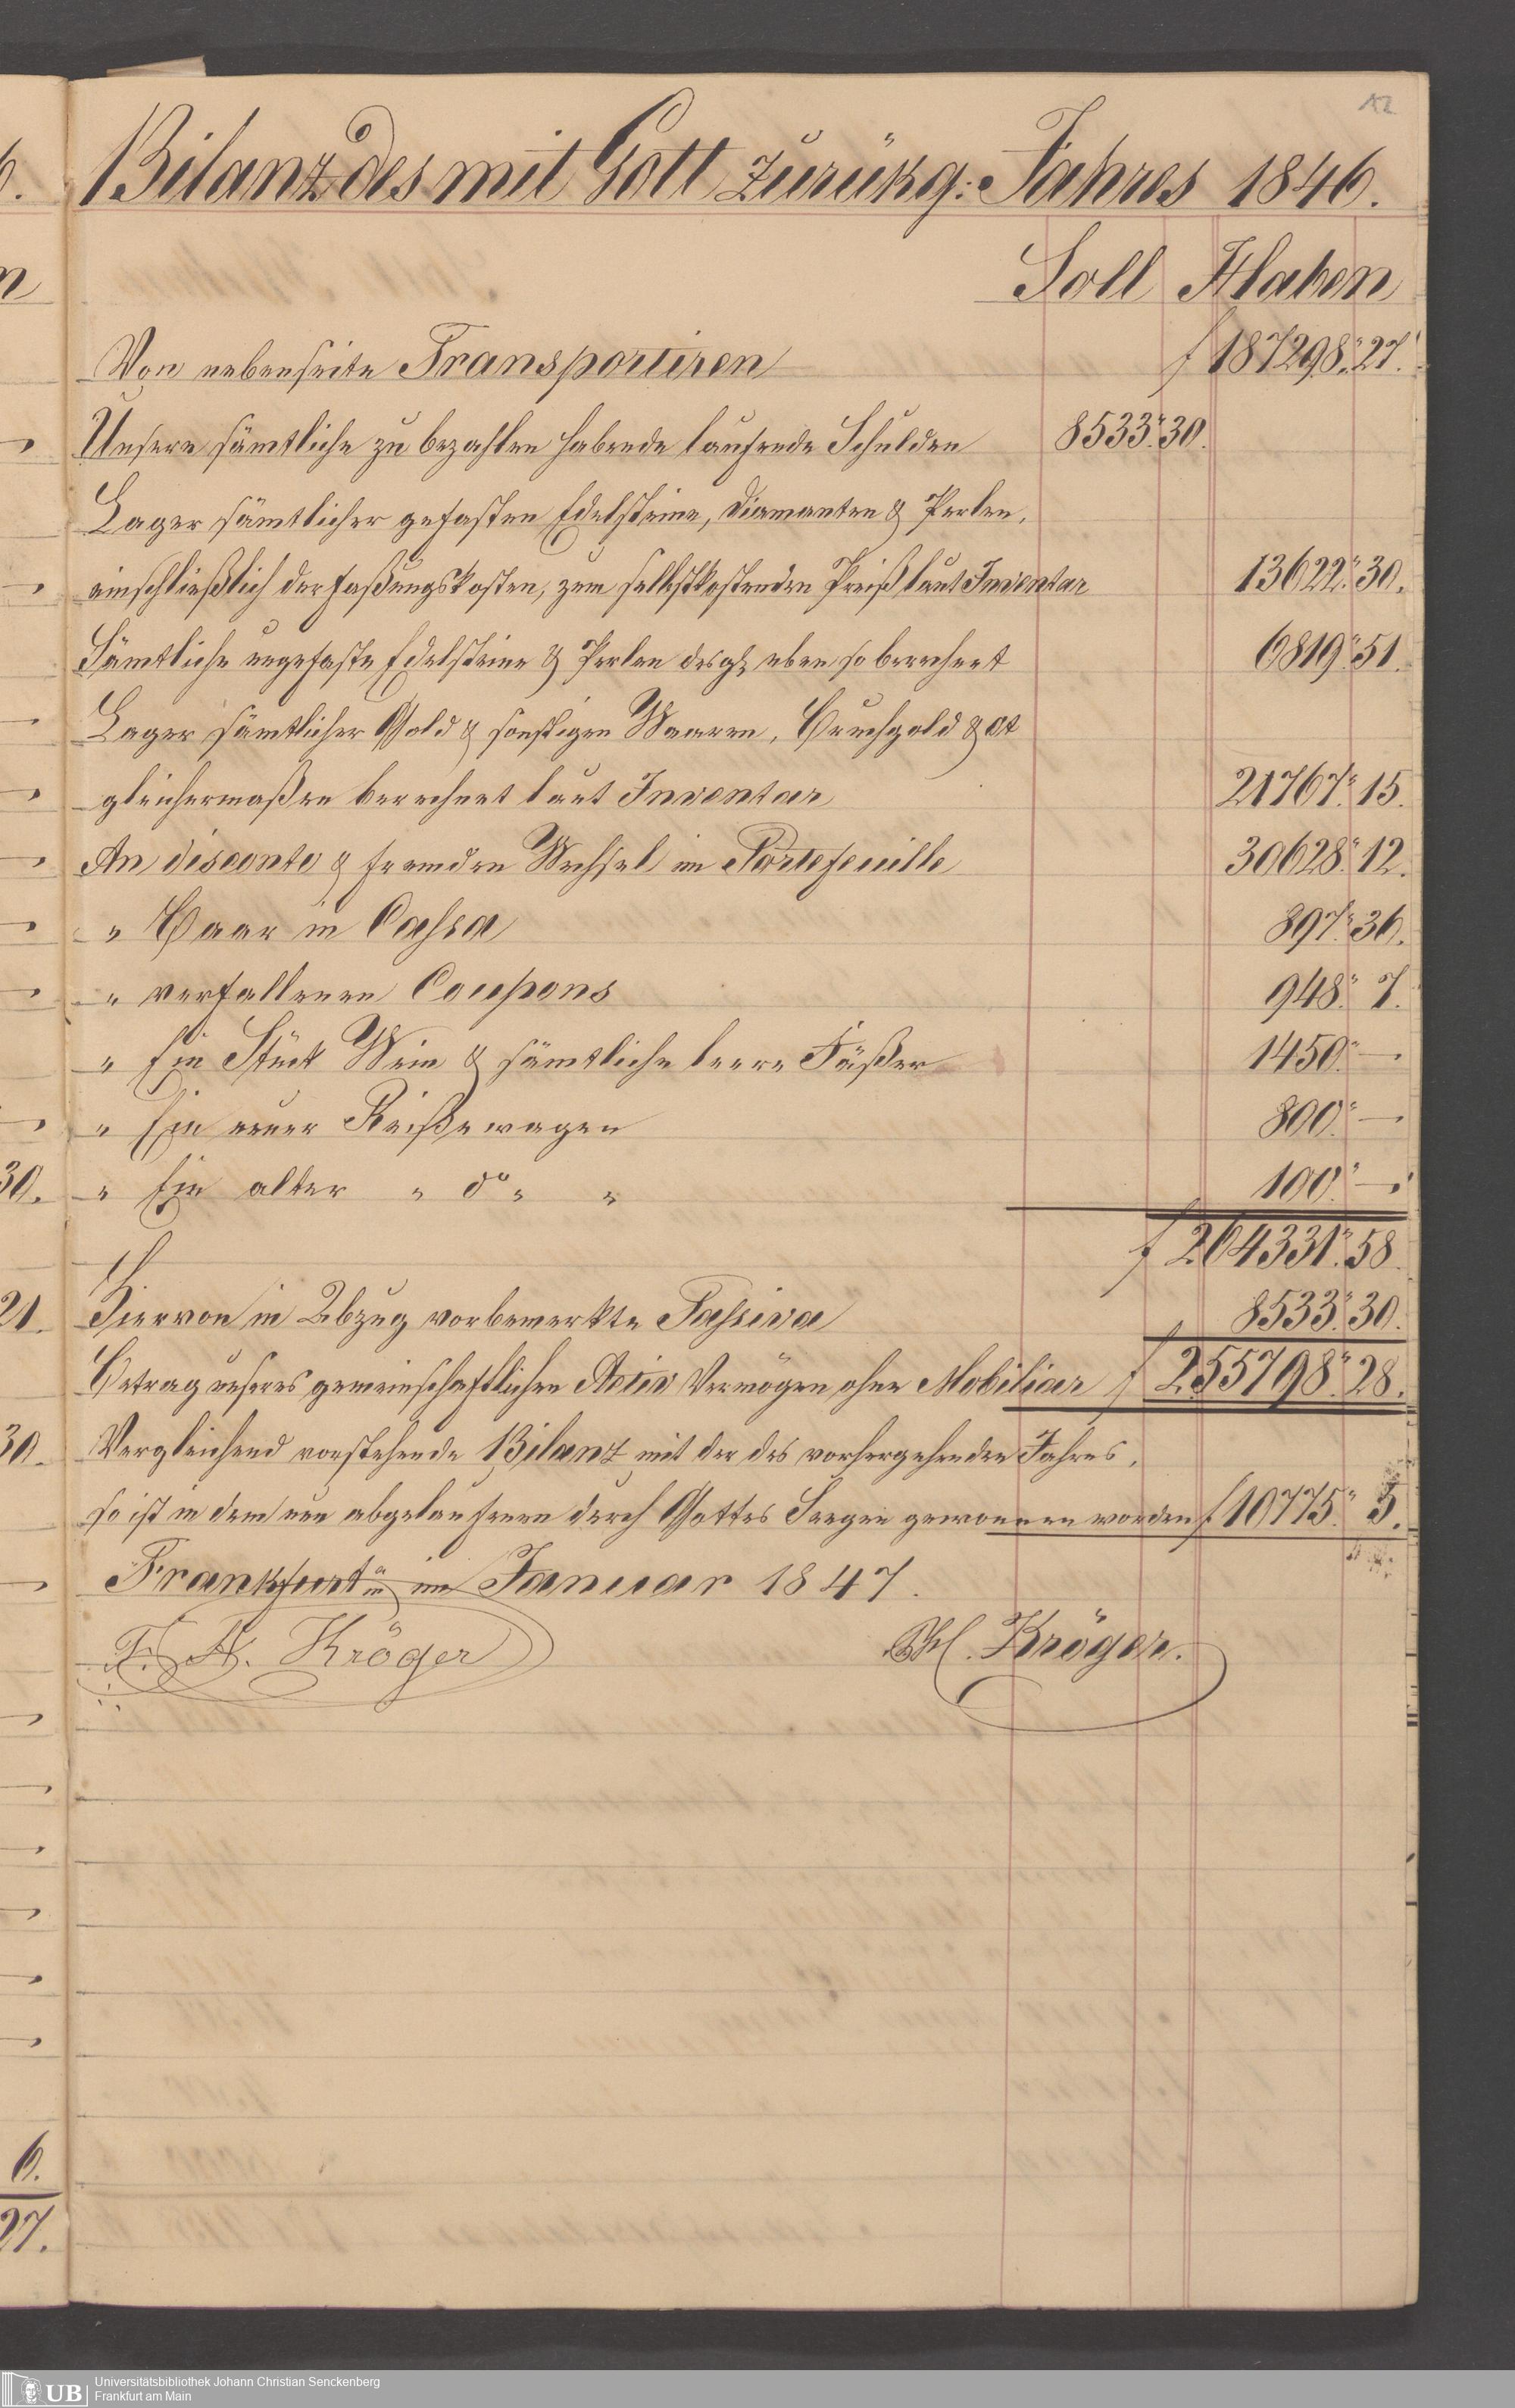 12
Bilanz des mit Gott zurükg: Jahres 1846.
Soll Haben
Von nebenseite Transportiren f 187298.. 27.
Unsere sämtliche zu bezahlen habende laufende Schulden 8533.. 30.
Lager sämtlicher gefasten Edelsteine, Diamanten & Perlen,
einschließlich der Faßungskosten, zum selbstkostenden Preiß laut Inventar 13622.. 30.
Sämtliche ungefaste Edelsteine & Perlen desgl. eben so berechnet 6819.. 51.
Lager sämtlicher Gold & sonstigen Waaren, Bruchgold & Ct
gleichermaßen berechnet laut Inventar 21767.. 15.
An disconto & fremden Wechsel im Portefeuille 30628.. 12.
" Baar in Cassa 897.. 36.
" verfallenen Coupons 948.. 7.
" Ein Stück Wein & sämtliche leere Fäßer 1450.. —
" Ein neuer Reißewagen 800.. —
30. " Ein alter " do " " 100.. —
f 264331.. 58.
21. Hiervon in Abzug vorbemerkte Passiva 8533.. 30.
Betrag unseres gemeinschaftlichen Activ Vermögen ohne Mobiliar f 255798.. 28.
30. Vergleichend vorstehende Bilanz mit der des vorhergehenden Jahres,
so ist in dem nun abgelaufenen durch Gottes Seegen gewonnen worden f 10775.. 5.
Frankfurt a/m im Januar 1847.
F. A. Kröger Kröger.
6.
27.
UB Universitätsbibliothek Johann Christian Senckenberg
Frankfurt am Main